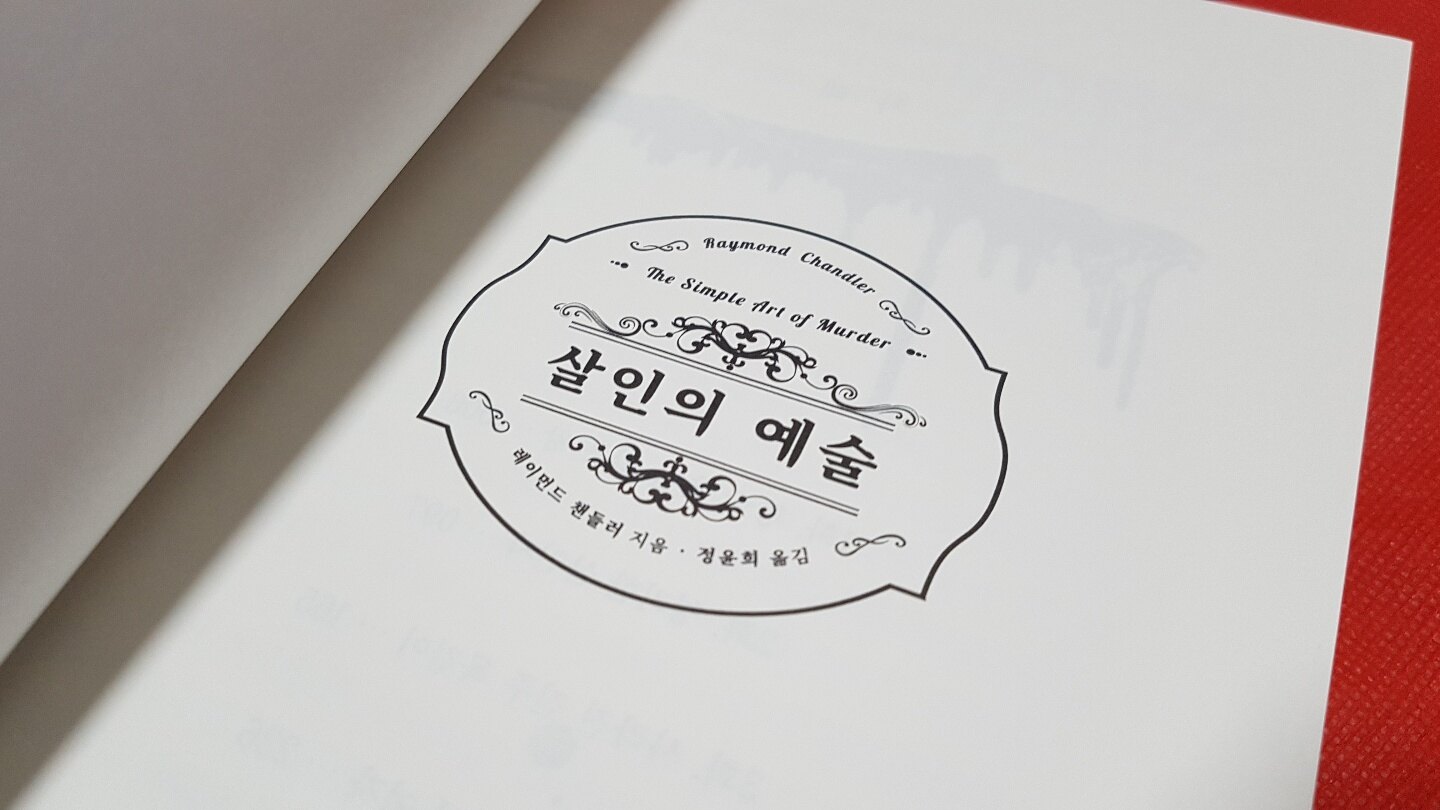 Raymond Chandler
The Simple Art of Murder
살인의 예술
레이먼드 챈들러 지음 · 정윤희 옮김